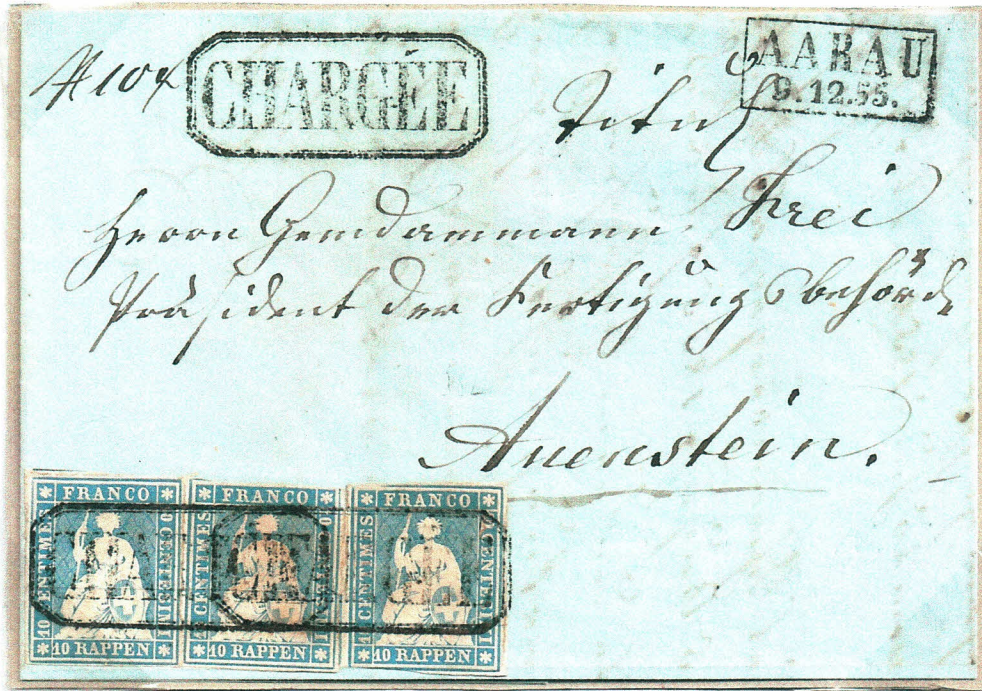 AARAU
9.12.55.
CHARGÉE
Herrn Gemdammann Frei
Präsident der Fertigungsbehörde
Auenstein.
FRANCO
10 CENTIMES
10 CENTESIMI
10 RAPPEN
FRANCO
10 CENTIMES
10 RAPPEN
FRANCO
10 CENTIMES
10 CENTESIMI
10 RAPPEN